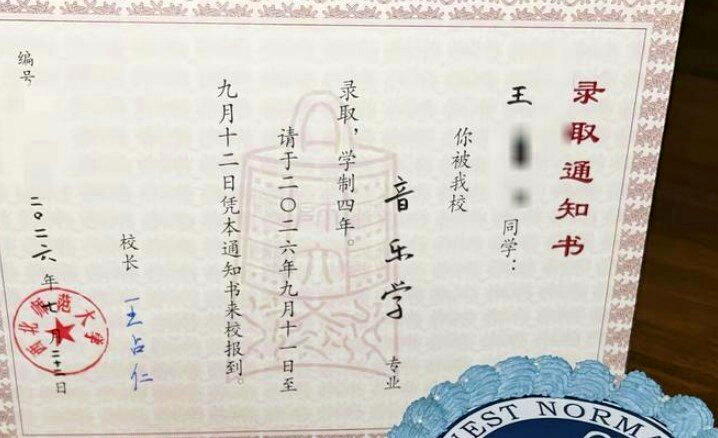 录取通知书
王
同学：
你被我校
音乐学 专业
录取，学制四年。
请于二〇二六年九月十一日至
九月十二日凭本通知书来校报到。
校长 王占仁
二〇二六年七月二十二日
编号
大学
EST NORM